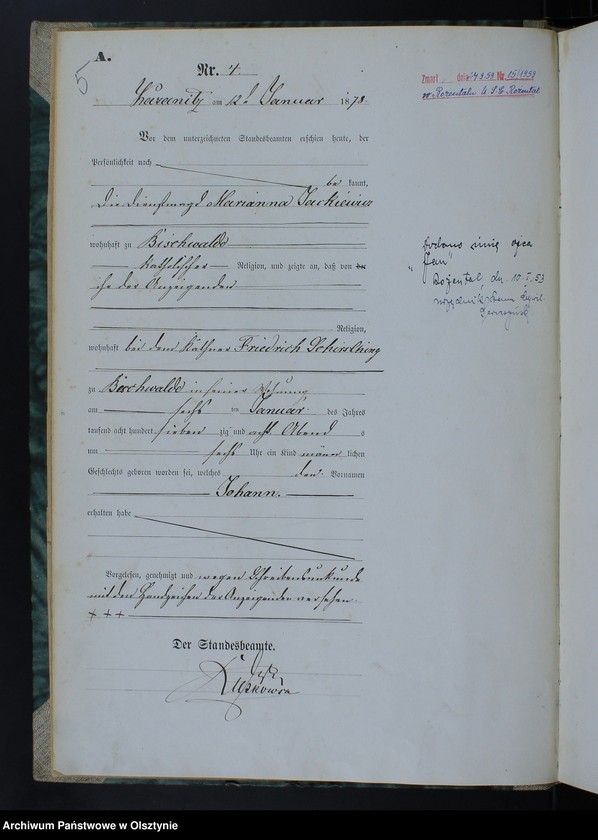 A.
5
Nr. 4.
am 12t Januar 1878.
Zmarł dnia 4.9.59 Nr. 15/1959
w Rozentalu U.S.C. Rozental
Vor dem unterzeichneten Standesbeamten erschien heute, der
Persönlichkeit nach
bekannt,
die Dienstmagd Marianna Jackiewicz
wohnhaft zu Bischwalde
katholischer Religion, und zeigte an, daß von der
ihr der Anzeigenden
Religion,
wohnhaft bei dem Käthner Friedrich
zu Bischwalde in seiner Wohnung
am sechs ten Januar des Jahres
tausend acht hundert sieben zig und acht Abend s
um sechs Uhr ein Kind männ lichen
Geschlechts geboren worden sei, welches den Vornamen
Johann.
erhalten habe
Vorgelesen, genehmigt und wegen Schreibensunkunde
mit den Handzeichen der Anzeigenden versehen.
+ + +
Der Standesbeamte.
dodano imię ojca
"Jan"
Rożental, dn. 10.I.53
Archiwum Państwowe w Olsztynie